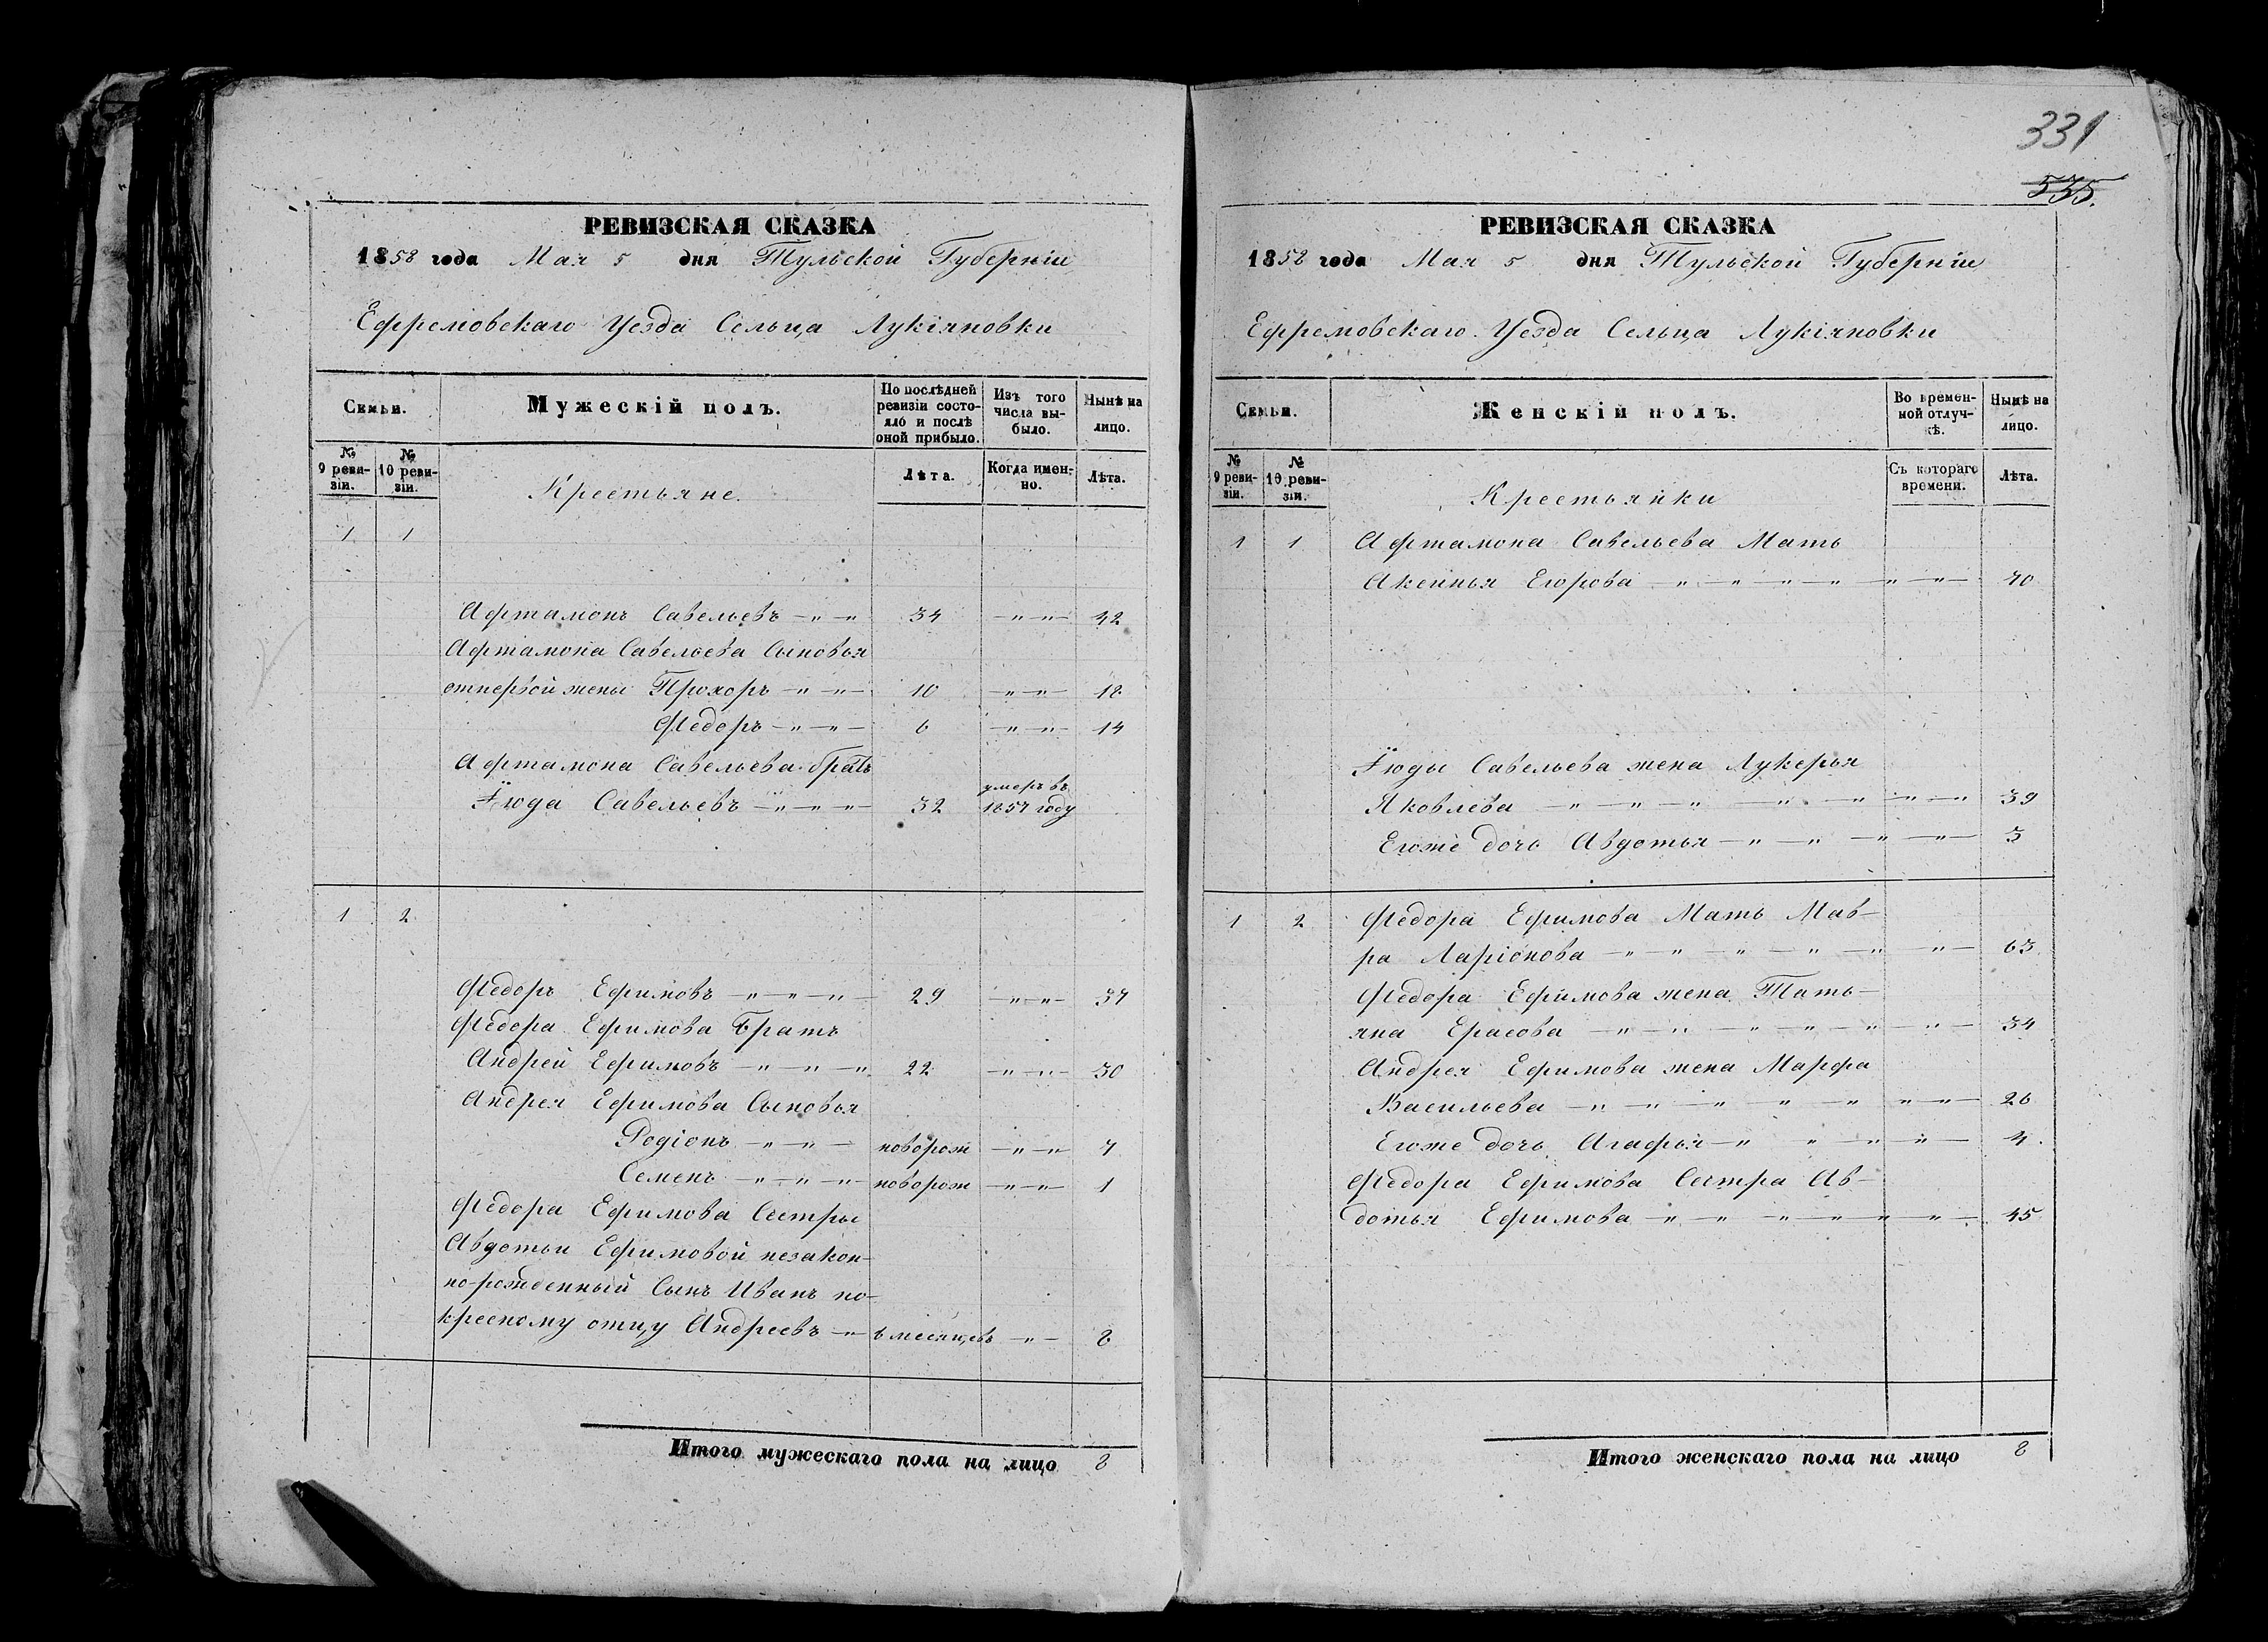 331
535.
РЕВИЗСКАЯ СКАЗКА
1858 года Мая 5 дня Тульской Губерніи
Ефремовскаго Уезда Сельца Лукіяновки
Семьи.
Мужескій полъ.
По послѣдней ревизіи состояло и послѣ оной прибыло.
Изъ того числа выбыло.
Нынѣ на лицо.
№ 9 ревизіи.
№ 10 ревизіи.
Крестьяне.
Лѣта.
Когда именно.
Лѣта.
1 1
Афтамонъ Савельевъ —„—„ 34 —„—„— 42
Афтамона Савельева Сыновья
отпервой жены Прохоръ —„—„— 10 —„—„— 18
Федоръ —„—„— 6 —„—„— 14
Афтамона Савельева братъ
Савельевъ —„—„—„— 32 умеръ въ 1857 году
1 2
Федоръ Ефимовъ —„—„—„— 29 —„—„— 37
Федора Ефимова Братъ
Андрей Ефимовъ —„—„—„ 22 —„—„— 30
Андрея Ефимова Сыновья
Родіонъ —„—„— новорож —„—„ 7
Семенъ —„—„—„— новорож —„—„— 1
Федора Ефимова Сестры
Авдотьи Ефимовой незакон-
но-рожденный Сынъ Иванъ по-
кресному отцу Андреевъ —„— 6 месяцевъ —„— 8
Итого мужескаго пола на лицо 8
РЕВИЗСКАЯ СКАЗКА
1858 года Мая 5 дня Тульской Губерніи
Ефремовскаго Уезда Сельца Лукіяновки
Семьи.
Женскій полъ.
Во временной отлучкѣ.
Нынѣ на лицо.
№ 9 ревизіи.
№ 10 ревизіи.
Крестьянки
Съ котораго времени.
Лѣта.
1 1 Афтамона Савельева Мать
Аксинья Егорова —„—„—„—„ „—„— 70
Савельева жена Лукерья
Яковлева —„—„—„—„—„—„—„ 39
Егоже дочь Авдотья —„—„—„—„— 3
1 2 Федора Ефимова Мать Мав-
ра Ларіонова —„—„—„—„—„ —„— 63
Федора Ефимова жена Тать-
яна Ерасова —„—„—„—„—„ „— 34
Андрея Ефимова жена Марфа
Васильева —„—„—„—„—„ „—„— 26
Егоже дочь Агафья —„—„—„—„— 4.
Федора Ефимова Сестра Ав-
дотья Ефимова —„—„—„—„—„—„— 45
Итого женскаго пола на лицо 8